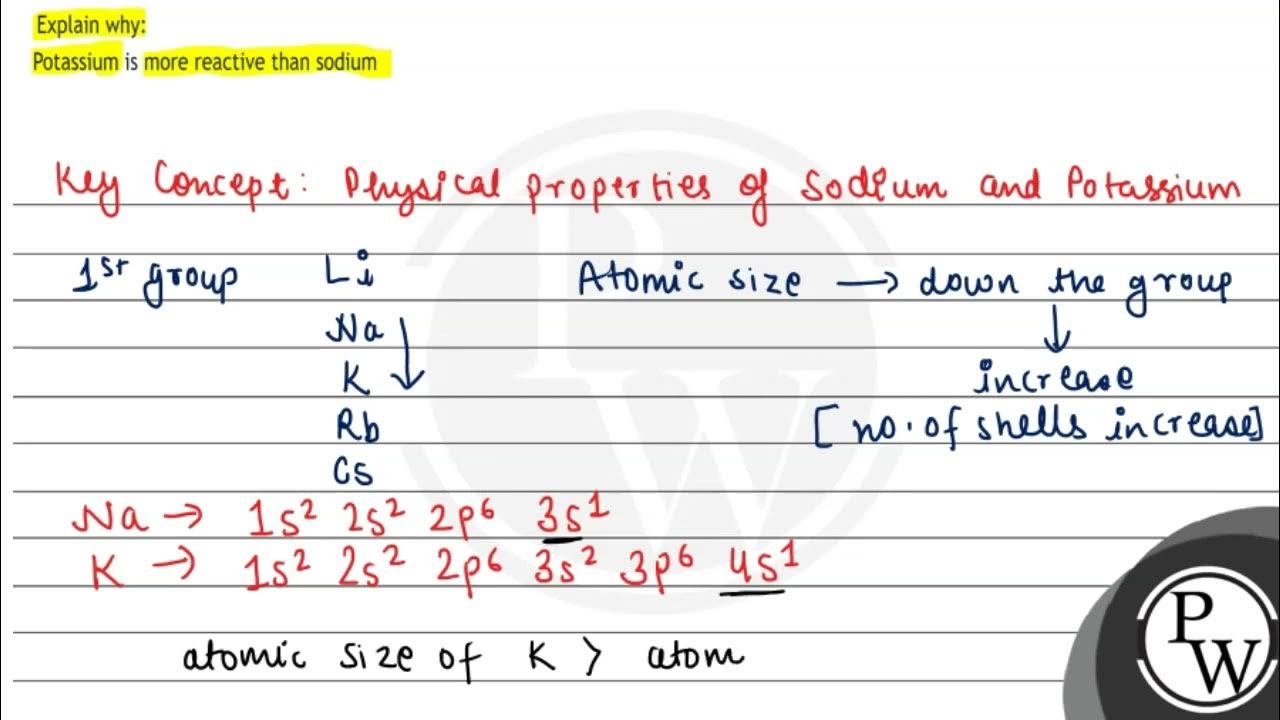 Explain why:
Potassium is more reactive than sodium
Key Concept: Physical properties of Sodium and Potassium
1st group Li Atomic size → down the group
Na ↓
K increase
Rb [no. of shells increase]
Cs
Na → 1s² 2s² 2p⁶ 3s¹
K → 1s² 2s² 2p⁶ 3s² 3p⁶ 4s¹
atomic size of K > atom
PW
PW